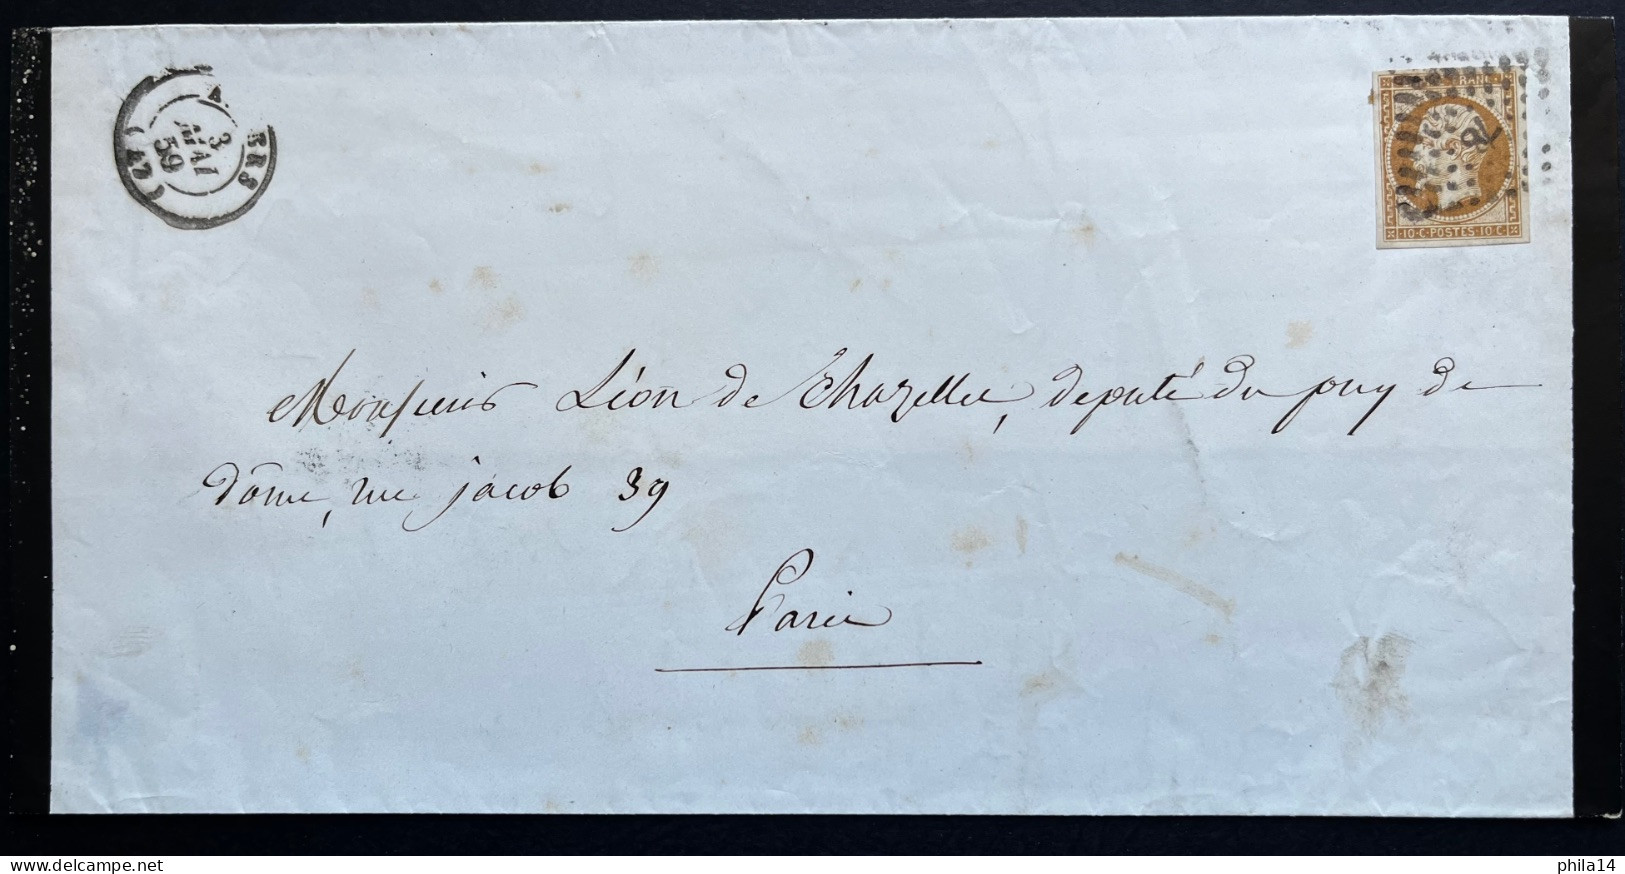 3
MAI
59
FRANC
10·C·POSTES·10·C
78
Monsieur Léon de Chazelles, deputé du puy de
dôme, rue jacob 39
Paris
phila14